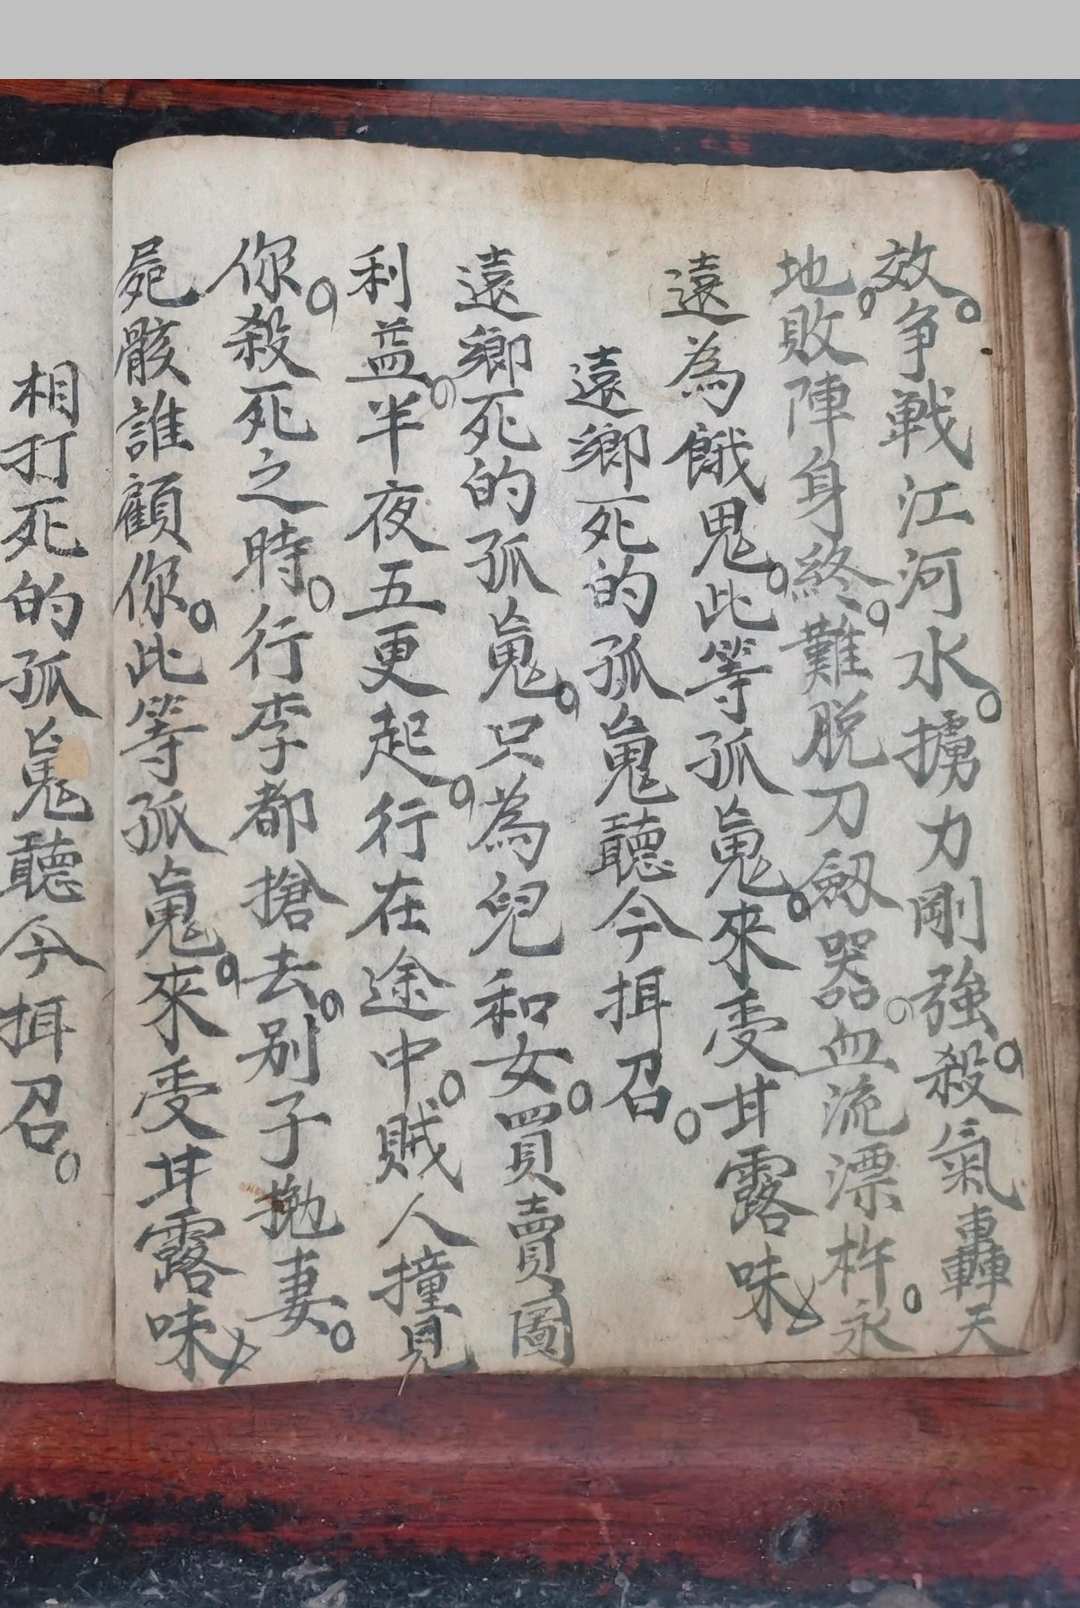 效。争戰江河水。擄力剛強。殺氣轟天
地。敗陣身終。難脱刀劔器。血流漂杵。永
遠為餓鬼。此等孤䰟。來受甘露味
遠鄉死的孤䰟聽今拜召。
遠鄉死的孤䰟。只為兒和女。買賣圖
利益。半夜五更起。行在途中。賊人撞見
你。殺死之時。行李都搶去。别子抛妻。
屍骸誰顧你。此等孤䰟。來受甘露味
相打死的孤䰟聽今拜召。